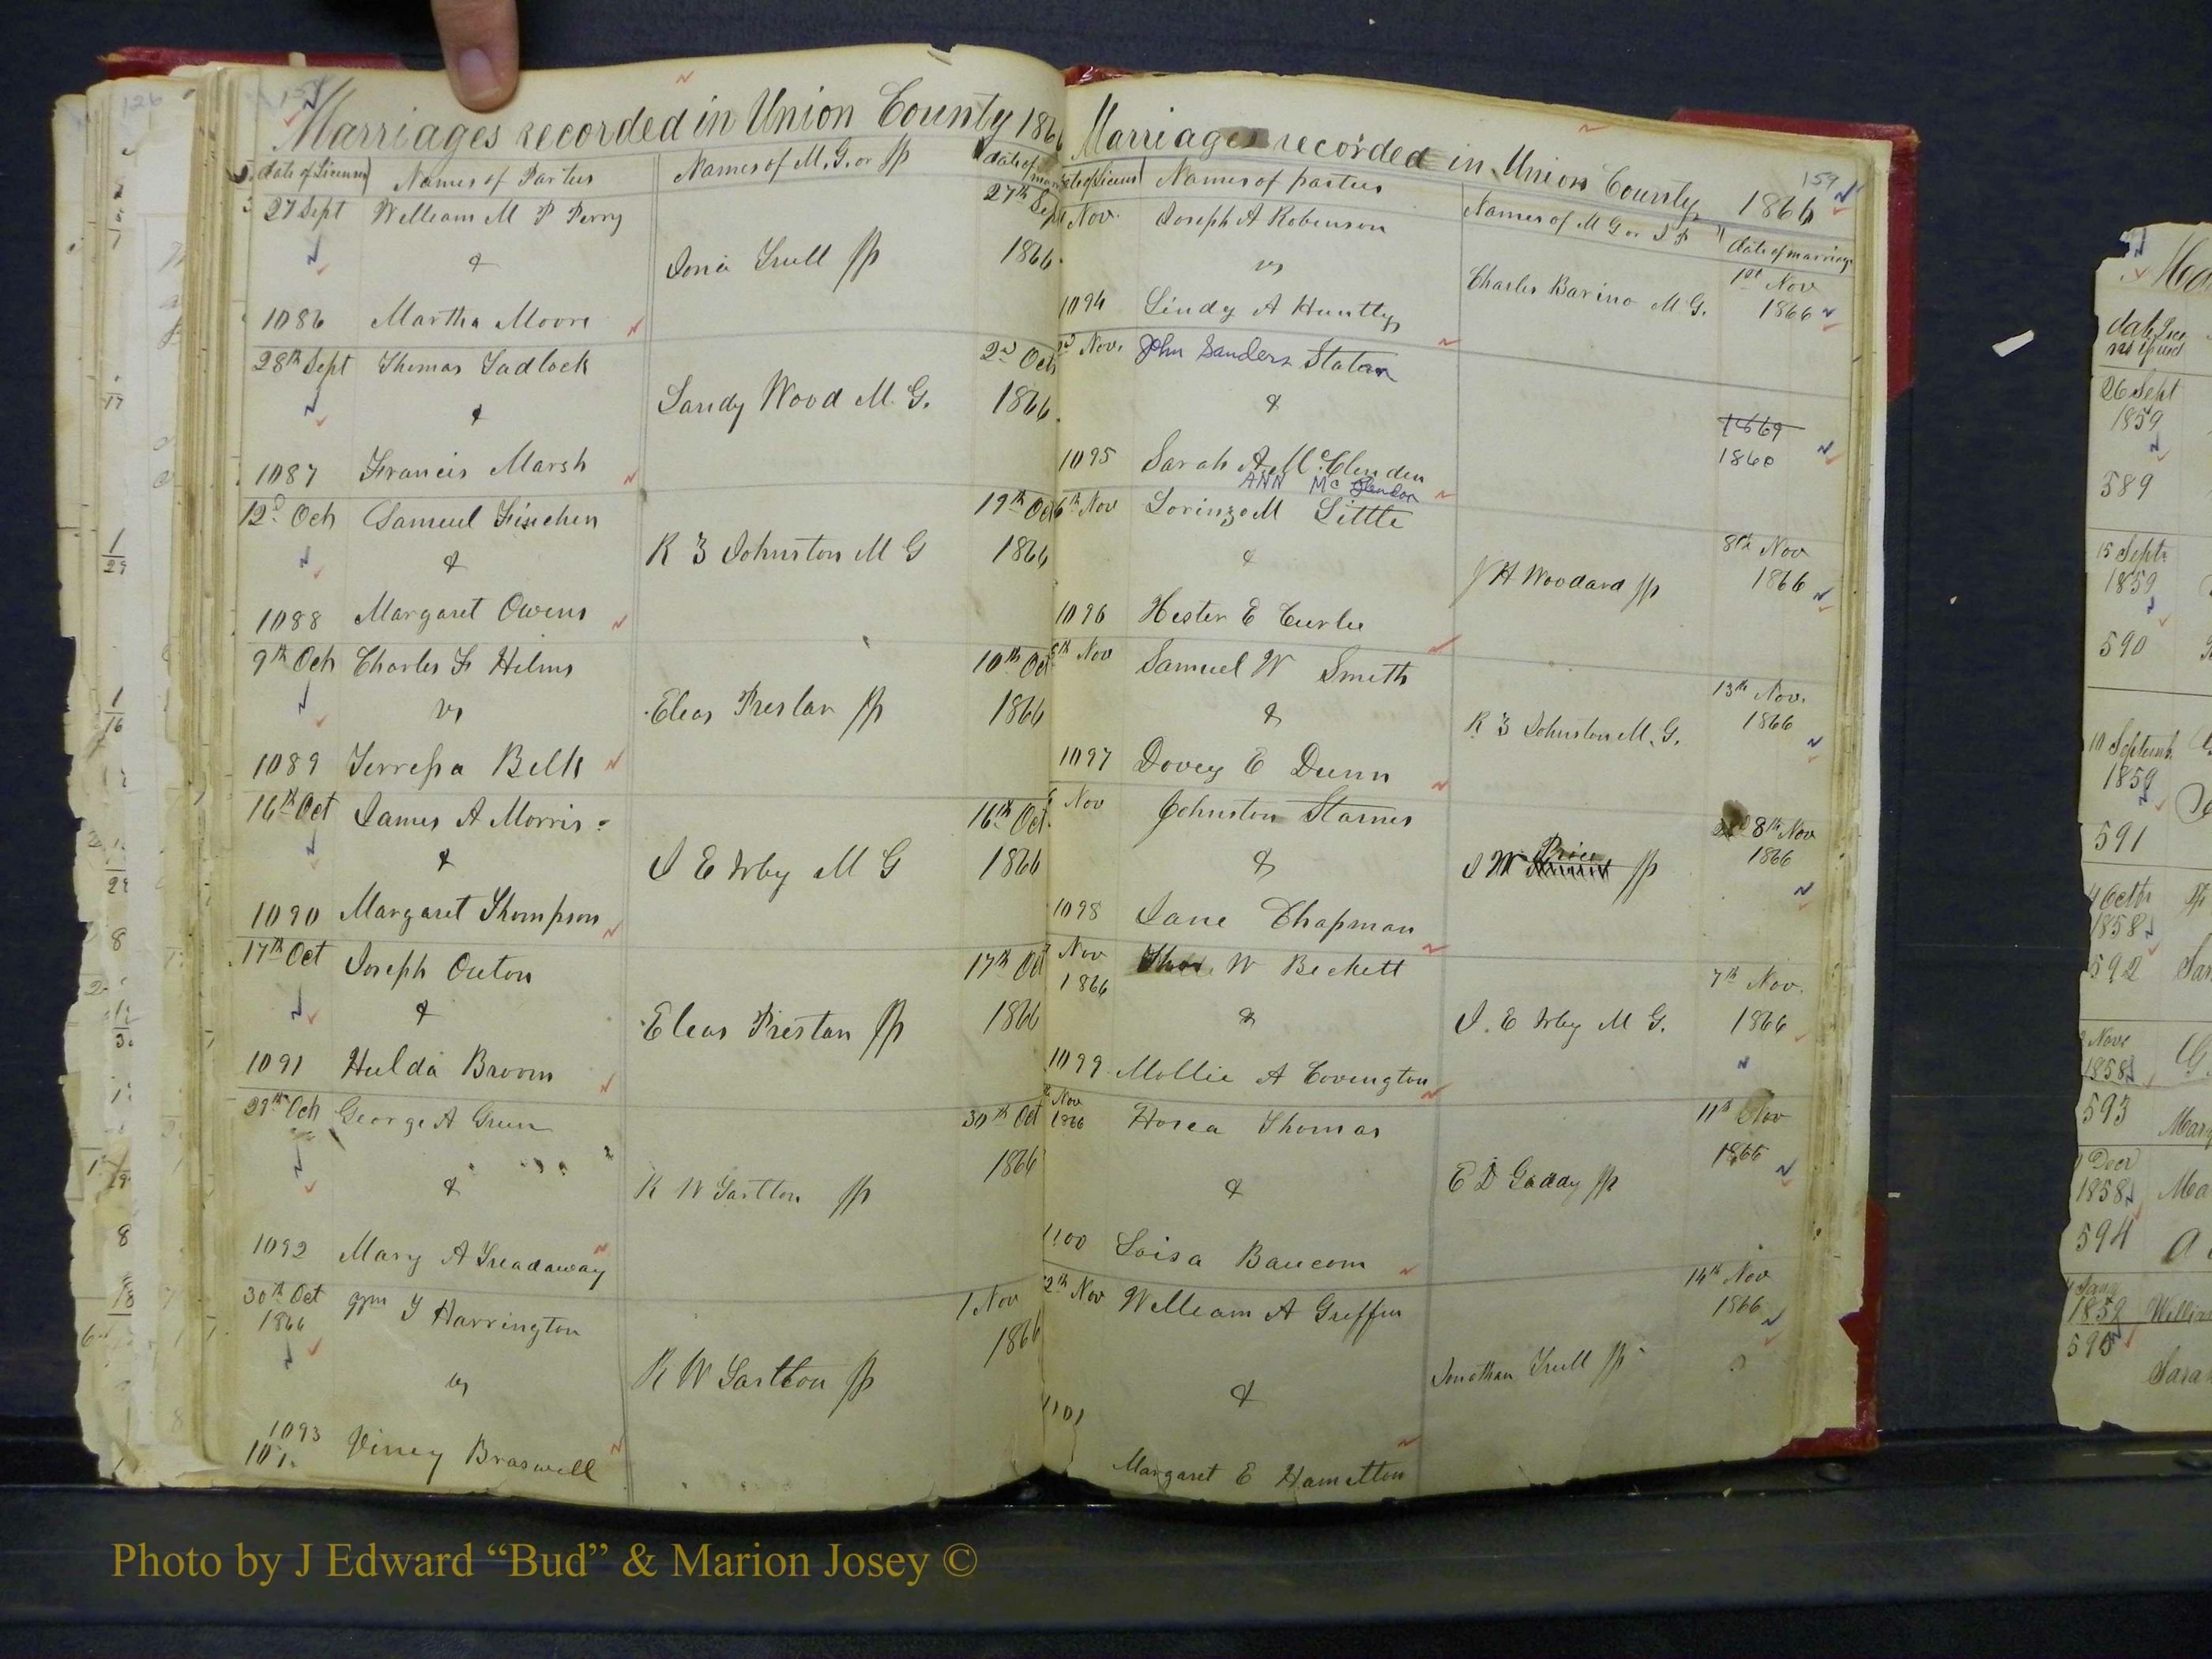 158
Marriages recorded in Union County 1866
date of License Names of Parties Names of M.G. or JP date of
27 Sept William M P Perry 27th Sept
& Trull JP 1866
1086 Martha Moore
28th Sept Thomas Tadlock 2d Oct
& Sandy Wood M. G. 1866
1087 Francis Marsh
12d Oct Samuel Fincher 19th Oct
& R Z Johnston M G 1866
1088 Margaret Owens
9th Oct Charles F Helms 10th Oct
vs Elcas Preslar JP 1866
1089 Terressa Belk
16th Oct James A Morris 16th Oct
& J E Irby M G 1866
1090 Margaret Thompson
17th Oct Joseph Outon 17th Oct
& Elcas Preslar JP 1866
1091 Hulda Broom
29th Oct George A Green 30th Oct
1866
& R W Tarlton JP
1092 Mary A Treadaway
30th Oct Y Harrington 1 Nov
1866 1866
vs R W Tarlton JP
1093 Viney Braswell
159
Marriages recorded in Union County 1866
date of License Names of parties Names of M G or J P date of marriage
Nov. Joseph A Robinson 1st Nov
vs Charles Barino M G. 1866
1094 Lindy A Huntly
2d Nov. John Sanders Staton
& 1869
1860
1095 Sarah A McClenden
ANN Mc Glendon
6th Nov Lorinzo M Little 8th Nov
& J H Woodard JP 1866
1096 Hester E Curlee
Nov Samuel W Smith 13th Nov.
& R Z Johnston M. G. 1866
1097 Dovey E Dunn
Nov Johnston Starnes 8th Nov
& J W Price JP 1866
1098 Jane Chapman
Nov Thos. W Beckett 7th Nov.
1866
& J. E Irby M G. 1866
1099 Mollie A Covington
Nov 1866 Hosea Thomas 11th Nov
1866
& E D Gaddy JP
1100 Loisa Baucom
12th Nov William A Griffin 14th Nov
1866
& Jonathan Trull JP
1101
Margaret E Hamilton
126
26 Sept
1859
589
15 Sept
1859
590
10 Septemb
1859
591
4 Octr
1858
592
Nov
1858
593
Decr
1858
594
1859
595
Photo by J Edward “Bud” & Marion Josey ©